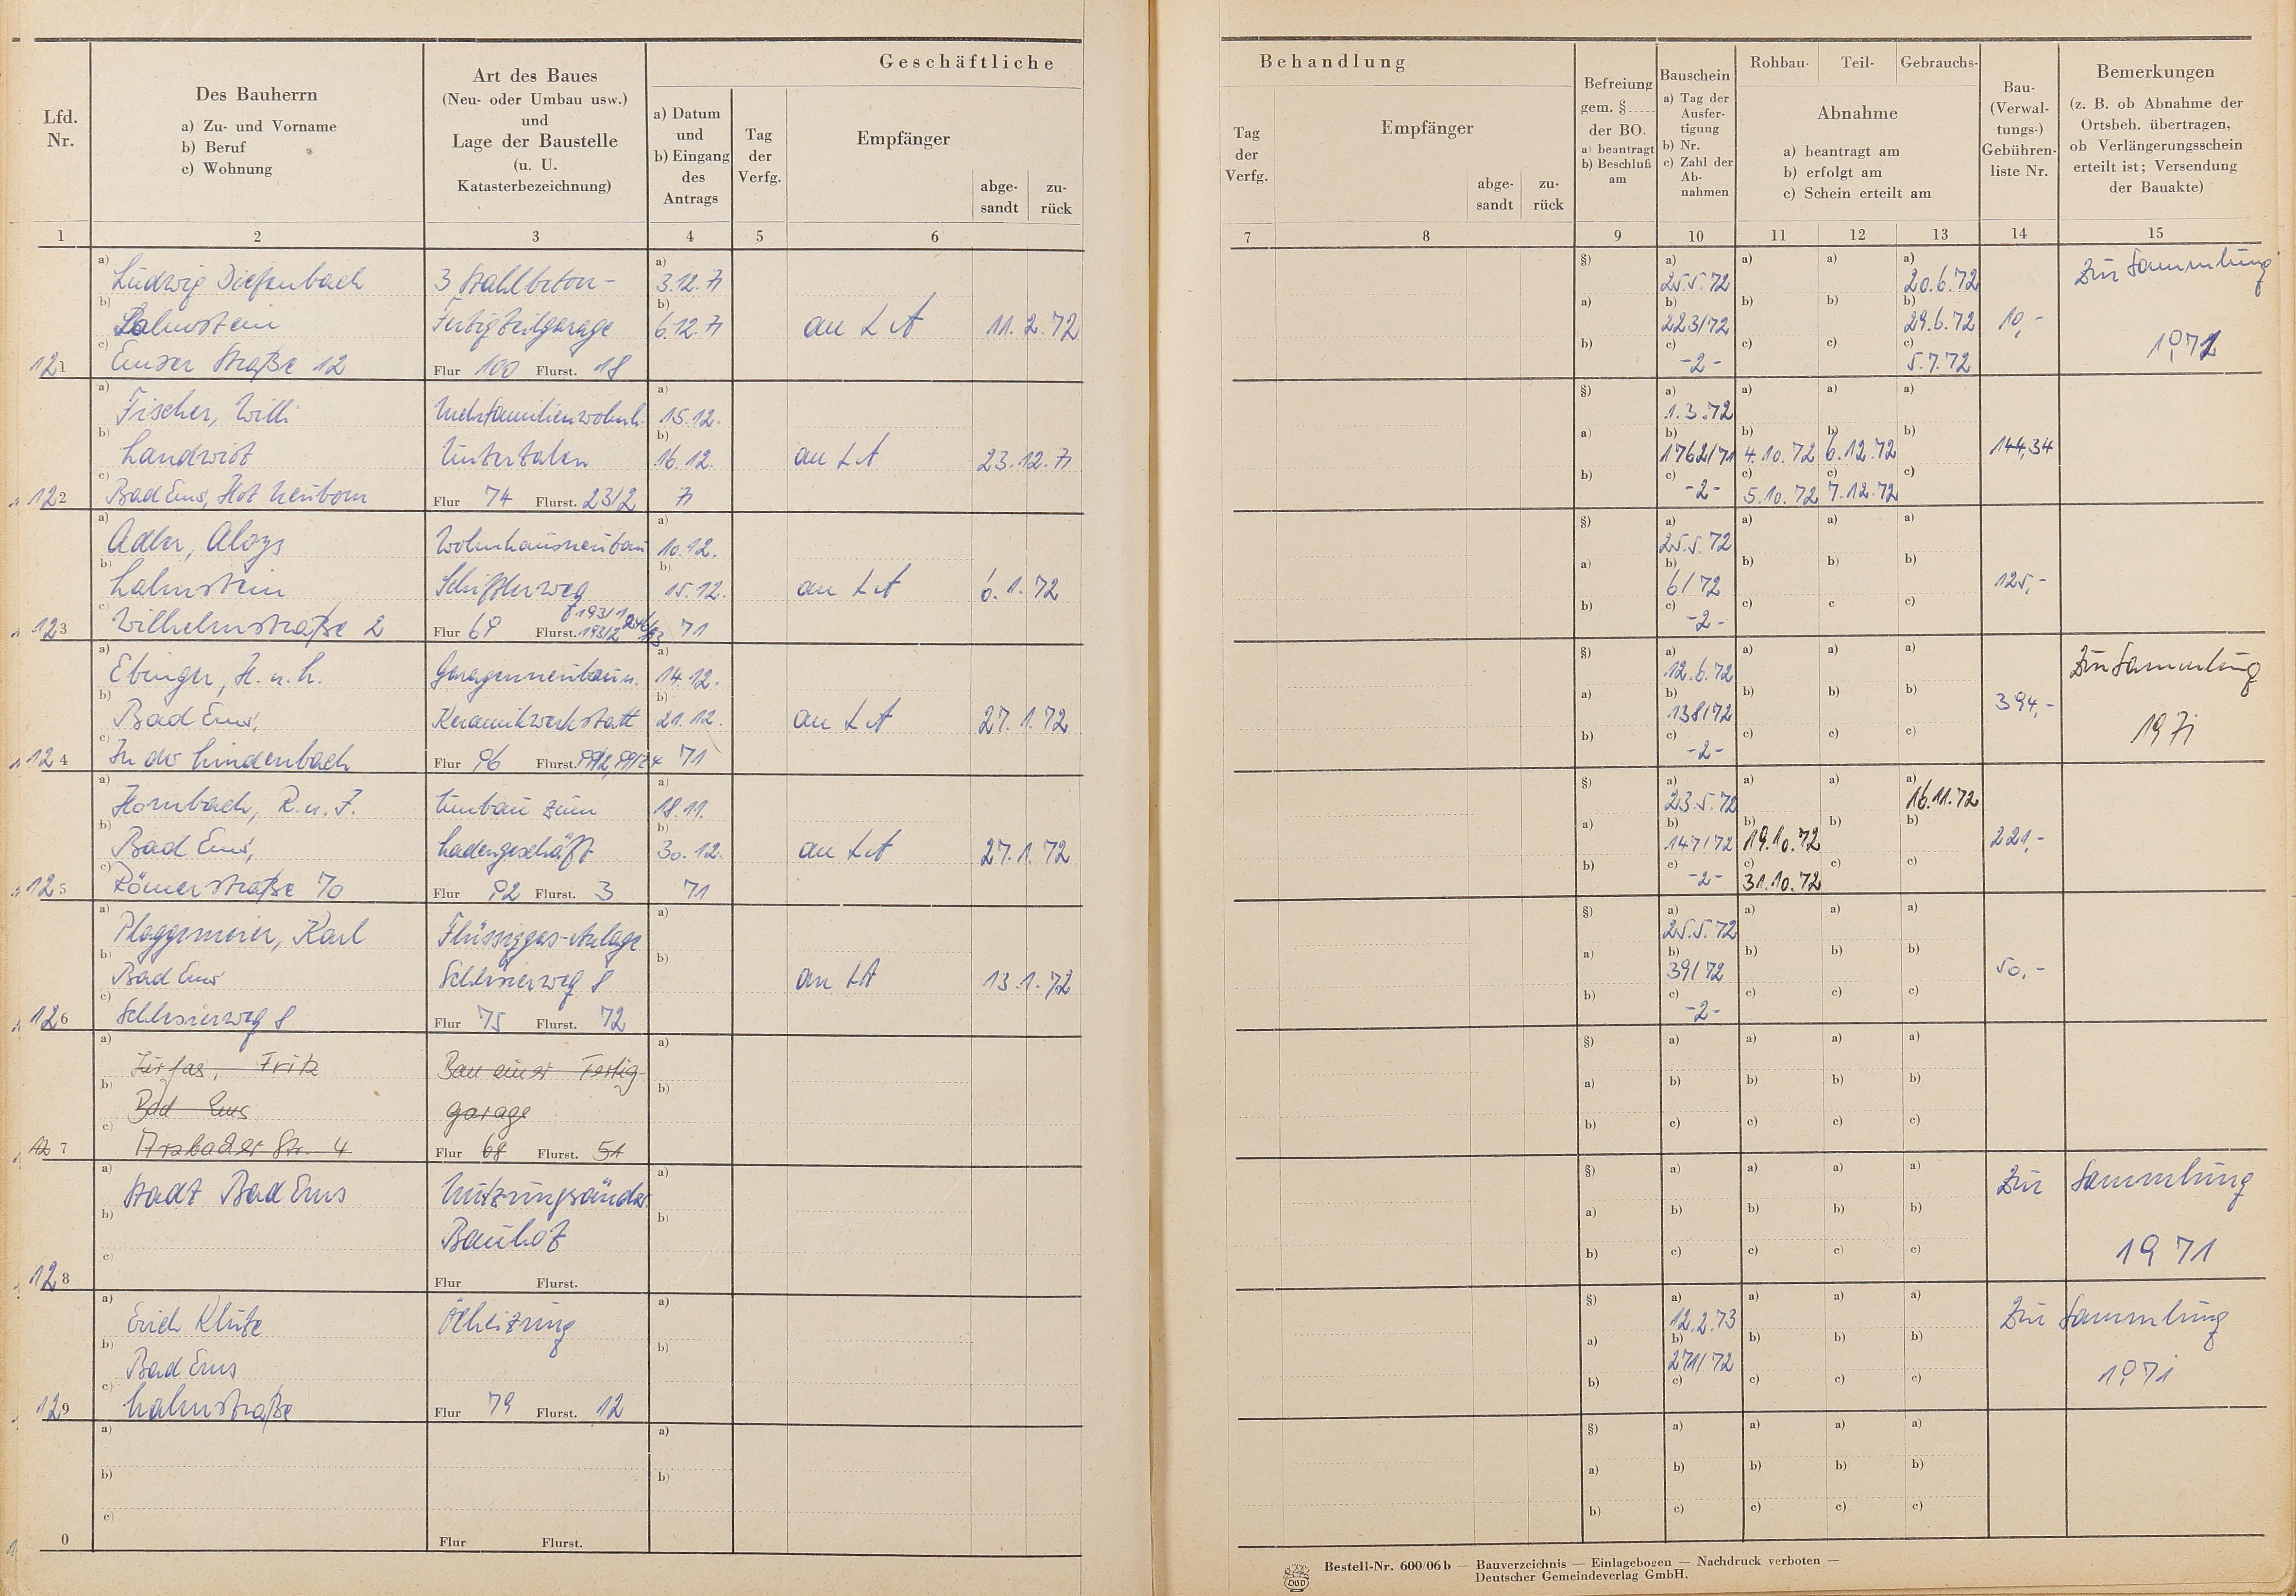 Geschäftliche
Behandlung
Lfd. Nr.
Des Bauherrn
a) Zu- und Vorname
b) Beruf
c) Wohnung
Art des Baues
(Neu- oder Umbau usw.)
und
Lage der Baustelle
(u. U.
Katasterbezeichnung)
a) Datum
und
b) Eingang
des
Antrags
Tag
der
Verfg.
Empfänger
abge-
sandt
zu-
rück
Tag
der
Verfg.
Empfänger
abge-
sandt
zu-
rück
Befreiung
gem. §
der BO.
a) beantragt
b) Beschluß
am
Bauschein
a) Tag der
Ausfer-
tigung
b) Nr.
c) Zahl der
Ab-
nahmen
Rohbau- Teil- Gebrauchs-
Abnahme
a) beantragt am
b) erfolgt am
c) Schein erteilt am
Bau-
(Verwal-
tungs-)
Gebühren-
liste Nr.
Bemerkungen
(z. B. ob Abnahme der
Ortsbeh. übertragen,
ob Verlängerungsschein
erteilt ist; Versendung
der Bauakte)
1 2 3 4 5 6 7 8 9 10 11 12 13 14 15
a) Ludwig Diefenbach 3 Stahlbeton- a) 3.12.71 §) a) 25.5.72 a) a) a) 20.6.72 Zur Sammlung
b) Lahnstein Fertigteilgarage b) 6.12.71 an LA 11.2.72 a) b) 223/72 b) b) b) 29.6.72 10,-
121 c) Emser Straße 12 Flur 100 Flurst. 18 b) c) -2- c) c) c) 5.7.72 1971
a) Fischer, Willi Mehrfamilienwohnh. a) 15.12. §) a) 1.3.72 a) a) a)
b) Landwirt Untertalen b) 16.12. an LA 23.12.71 a) b) 1762/71 b) 4.10.72 b) 6.12.72 b) 144,34
122 c) Bad Ems, Hof Neuborn Flur 74 Flurst. 23/2 71 b) c) -2- c) 5.10.72 c) 7.12.72 c)
a) Adler, Aloys Wohnhausneubau a) 10.12. §) a) 25.5.72 a) a) a)
b) Lahnstein b) 15.12. an LA 6.1.72 a) b) 6/72 b) b) b) 125,-
123 c) Wilhelmstraße 2 Flur 69 Flurst. 193/2 71 b) c) -2- c) c c)
a) Ebinger, H. u. H. Garagenneubau u. a) 14.12. §) a) 12.6.72 a) a) a) Zur Sammlung
b) Bad Ems, Keramikwerkstatt b) 21.12. an LA 27.1.72 a) b) 138/72 b) b) b) 394,-
124 c) In der Lindenbach Flur 96 Flurst. 71 b) c) -2- c) c) c) 1971
a) Hombach, R. u. F. Umbau zum a) 18.11. §) a) 23.5.72 a) a) a) 16.11.72
b) Bad Ems, Ladengeschäft b) 30.12. an LA 27.1.72 a) b) 147/72 b) 19.10.72 b) b) 221,-
125 c) Römerstraße 70 Flur 92 Flurst. 3 71 b) c) -2- c) 31.10.72 c) c)
a) Plaggemeier, Karl Flüssiggas-Anlage a) §) a) 25.5.72 a) a) a)
b) Bad Ems Schlesierweg 8 b) an LA 13.1.72 a) b) 39/72 b) b) b) 50,-
126 c) Schlesierweg 8 Flur 75 Flurst. 72 b) c) -2- c) c) c)
a) Zirfas, Fritz Bau einer Fertig- a) §) a) a) a) a)
b) Bad Ems garage b) a) b) b) b) b)
127 c) Arzbacher Str. 4 Flur 68 Flurst. 51 b) c) c) c) c)
a) Stadt Bad Ems Nutzungsänder. a) §) a) a) a) a) Zur Sammlung
b) Bauhof b) a) b) b) b) b)
128 c) Flur Flurst. b) c) c) c) c) 1971
a) Erich Klute Ölheizung a) §) a) 12.2.73 a) a) a) Zur Sammlung
b) Bad Ems b) a) b) 271/72 b) b) b)
129 c) Lahnstraße Flur 79 Flurst. 12 b) c) c) c) c) 1971
a) a) §) a) a) a) a)
b) b) a) b) b) b) b)
0 c) Flur Flurst. b) c) c) c) c)
Bestell-Nr. 600/06 b — Bauverzeichnis — Einlagebogen — Nachdruck verboten —
Deutscher Gemeindeverlag GmbH.